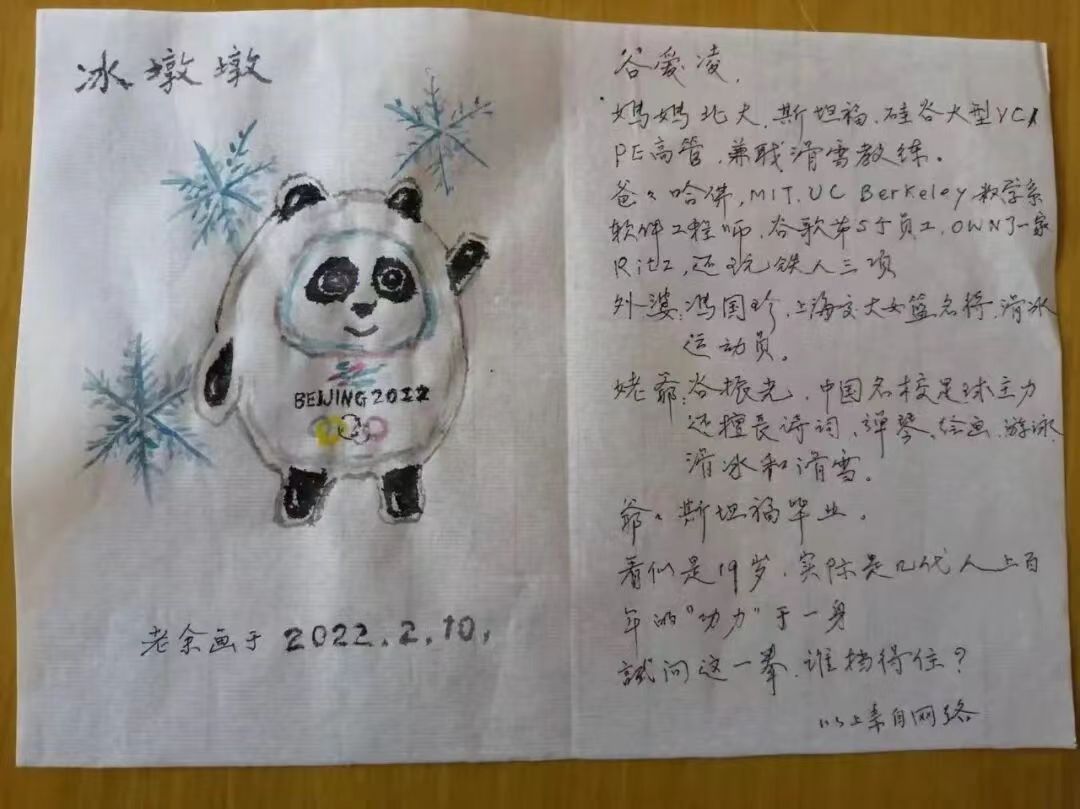 冰墩墩
BEIJING 2022
老余画于 2022.2.10.
谷爱凌.
妈妈北大.斯坦福.硅谷大型VC/
PE高管.兼职滑雪教练。
爸々哈佛.MIT.UC Berkeley数学系
软件工程师.谷歌第5个员工.OWN了一家
Ritz,还玩铁人三项
外婆:冯国珍.上海交大女篮名将.滑冰
运动员。
姥爷:谷振光.中国名校足球主力
还擅長诗词、弹琴、绘画.游泳
滑冰和滑雪。
爷々斯坦福毕业。
看似是19岁.实际是几代人上百
年的“功力”于一身
試问这一拳.谁挡得住?
以上来自网络